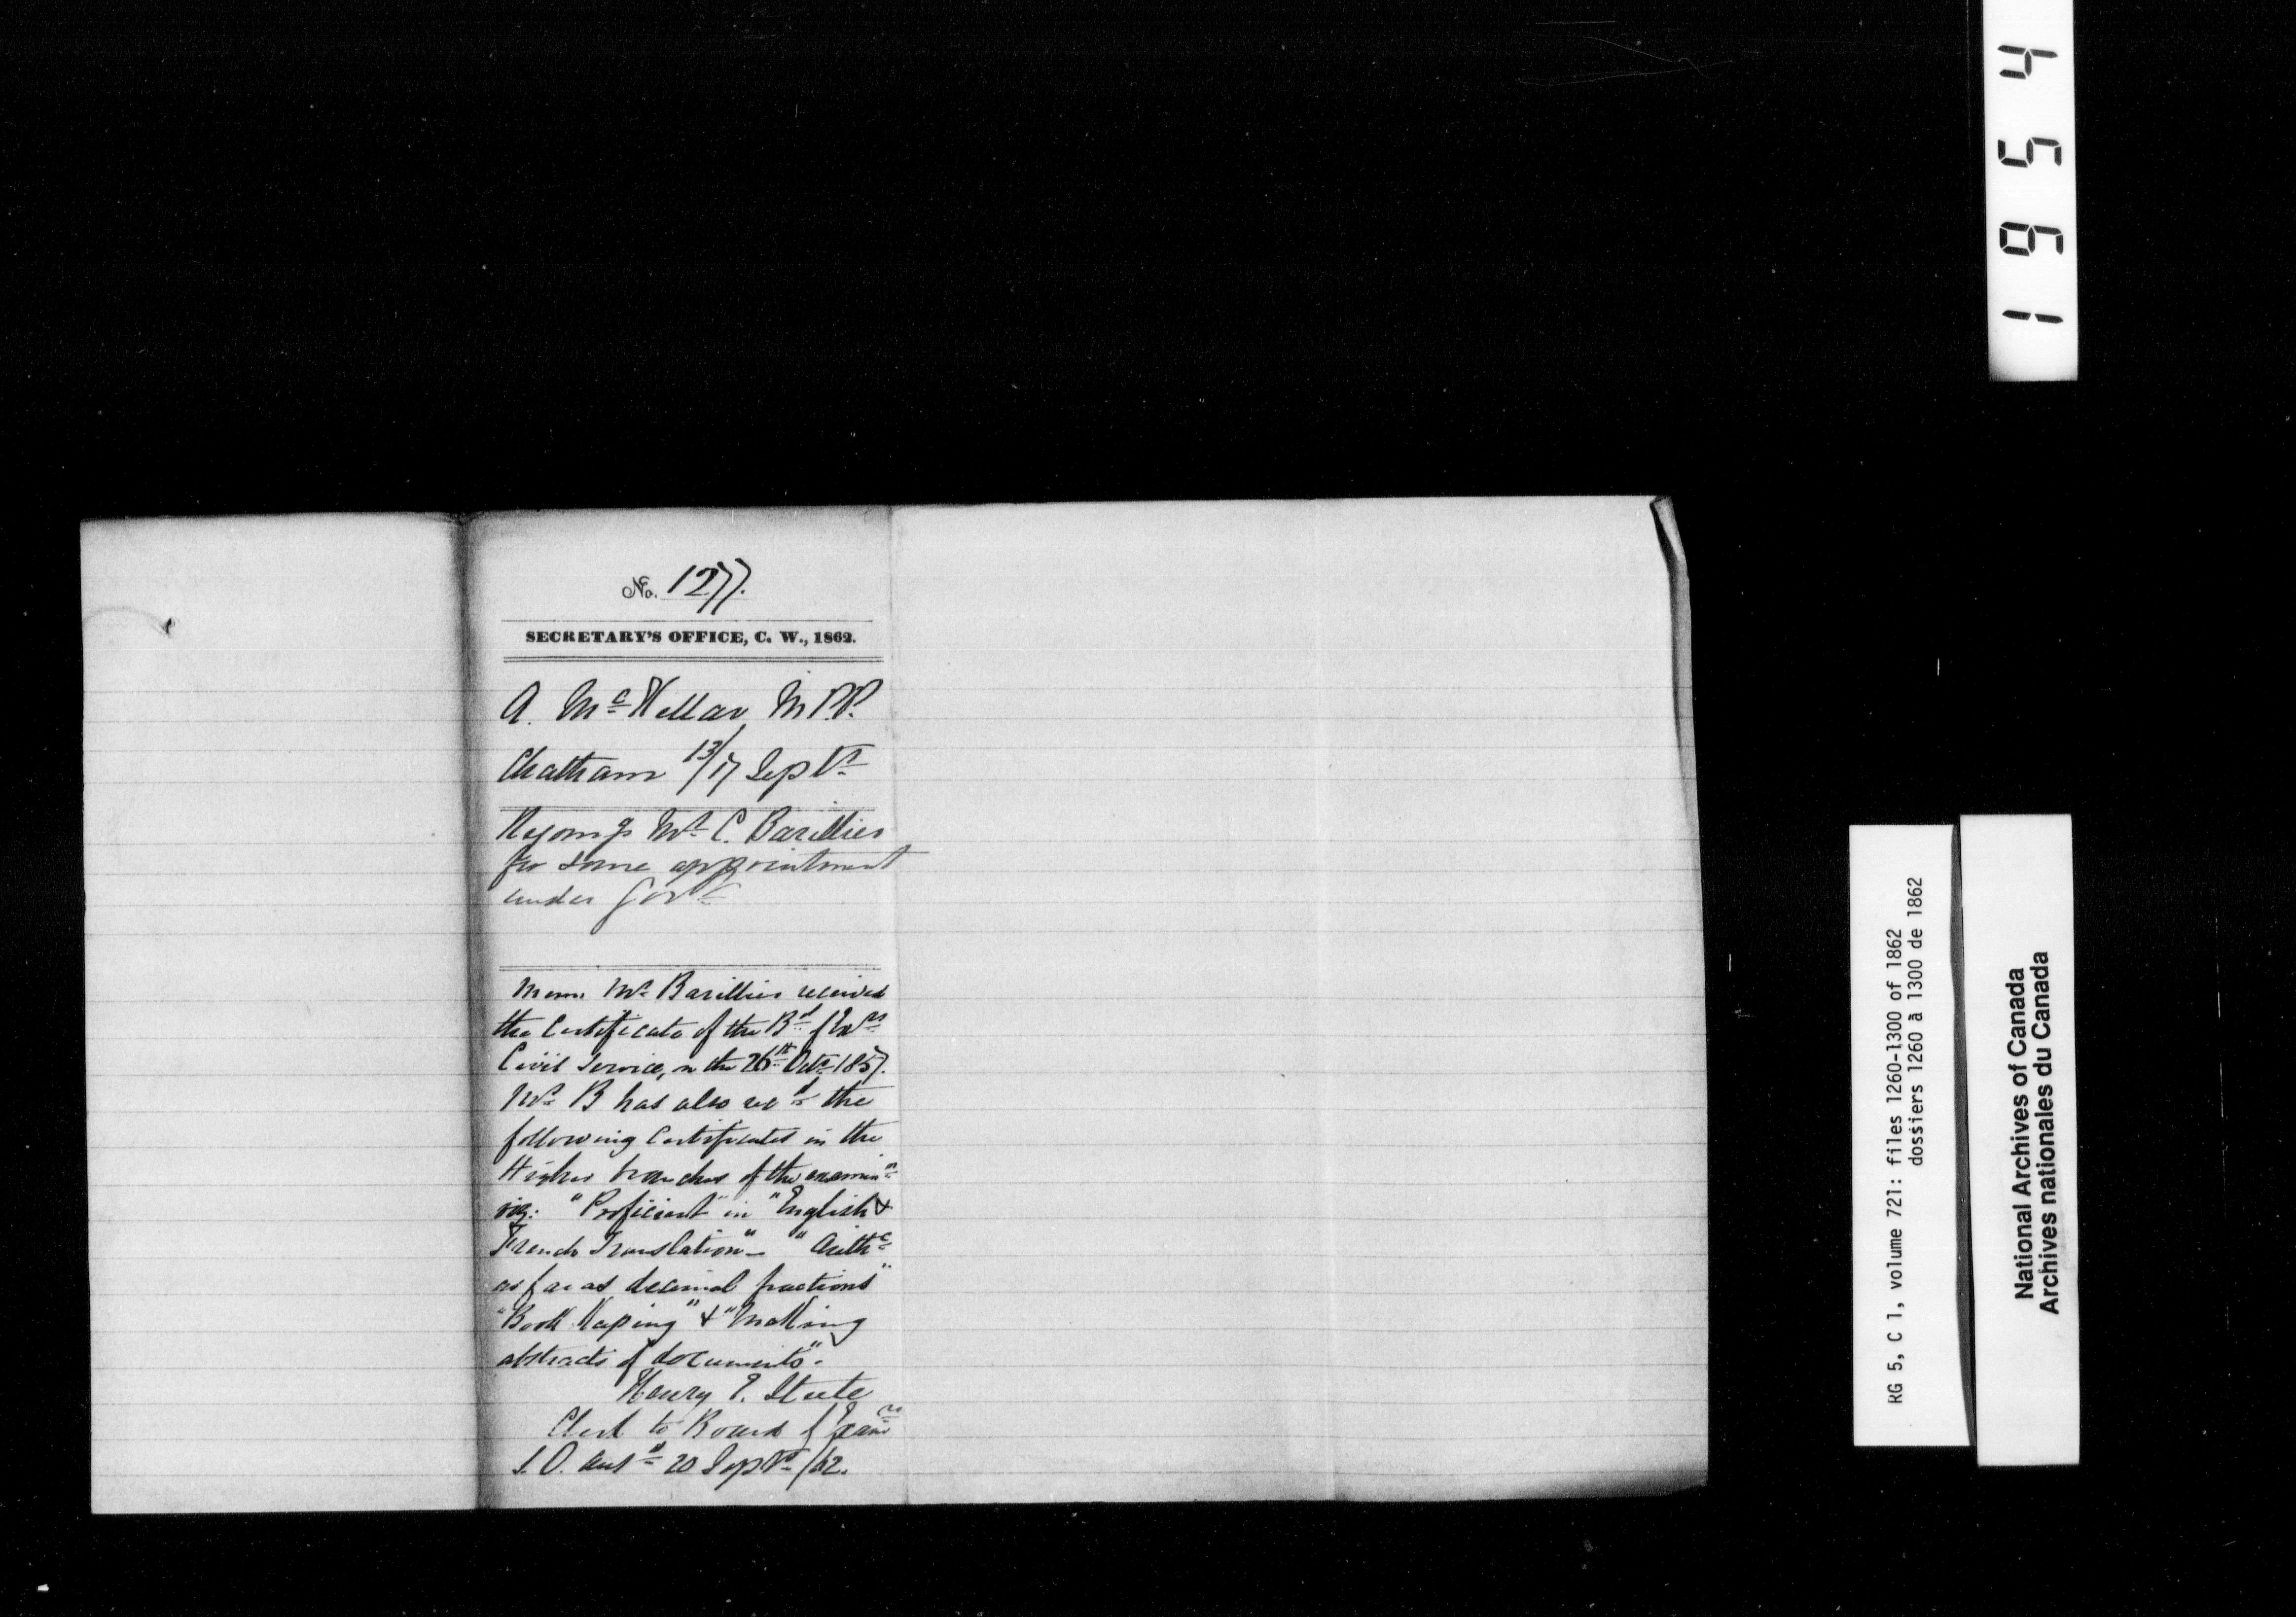 No. 1277.
SECRETARY'S OFFICE, C. W., 1862.
A. McKellar M.P.P.
Chatham 13/17 Septr
Mr C. Barillier
for some appointment
under Govt
Memo. Mr Barillier received
the Certificate of the Bd of Exrs
Civil Service, on the 26th Octr 1857.
Mr B has also recd the
following Certificates in the
Higher branches of the examinn
viz: "Proficient" in "English &
French Translation" - "Arithc
as far as decimal fractions"
"Book Keeping" & "Making
abstracts of documents".
Henry E. Steele
Clerk to Board of Examrs
S. O. 20 Septr /62.
1954
RG 5, C 1, volume 721: files 1260-1300 of 1862
dossiers 1260 à 1300 de 1862
National Archives of Canada
Archives nationales du Canada